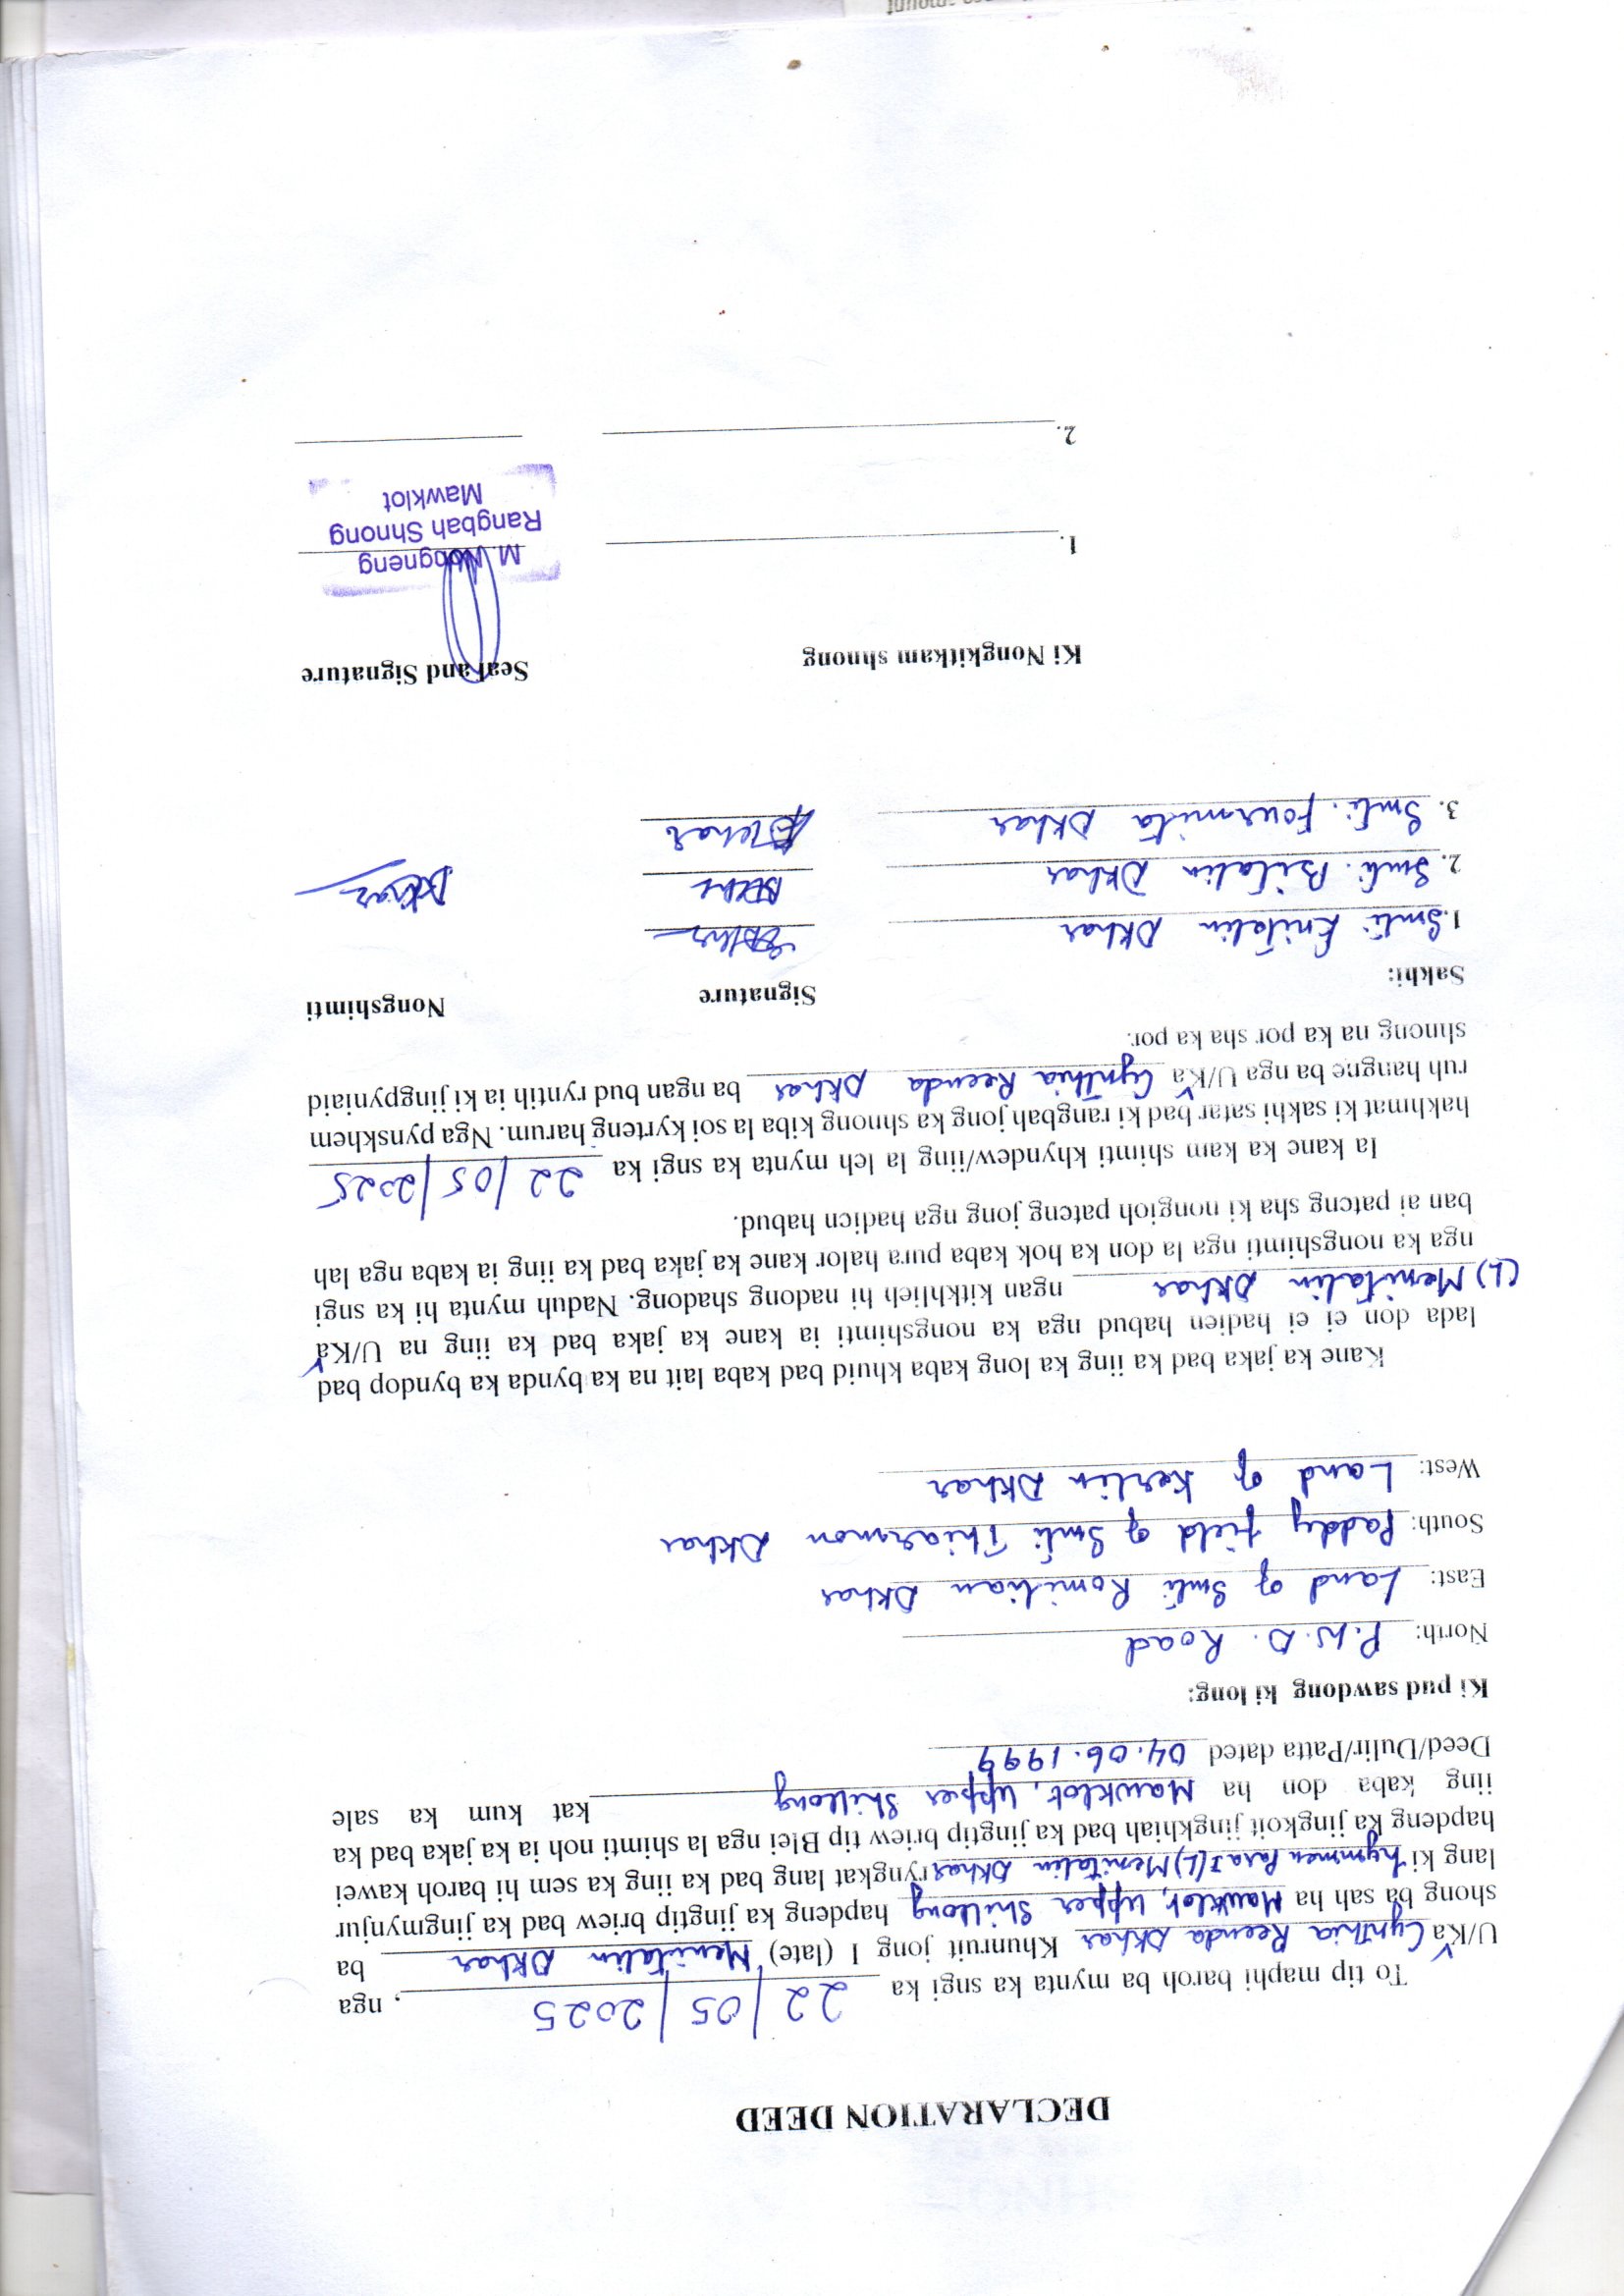 DECLARATION DEED
To tip maphi baroh ba mynta ka sngi ka 22/05/2025, nga
U/Ka Cynthia Reenda Dkhar Khunruit jong I (late) Menitalin Dkhar ba
shong ba sah ha Mawklot, Upper Shillong hapdeng ka jingtip briew bad ka jingmynjur
lang ki hynmen Para I (L) Menitalin Dkhar ryngkat lang bad ka iing ka sem hi baroh kawei
hapdeng ka jingkoit jingkhiah bad ka jingtip briew tip Blei nga la shimti noh ia ka jaka bad ka
iing kaba don ha Mawklot, Upper Shillong kat kum ka sale
Deed/Dulir/Patta dated 04.06.1999
Ki pud sawdong ki long:
North: P.W.D. Road
East: Land of Smti Romilian Dkhar
South: Paddy field of Smti Thiarmon Dkhar
West: Land of Kerlin Dkhar
Kane ka jaka bad ka iing ka long kaba khuid bad kaba lait na ka bynda ka byndop bad
lada don ei ei hadien habud nga ka nongshimti ia kane ka jaka bad ka iing na U/Ka
(L) Menitalin Dkhar ngan kitkhlieh hi nadong shadong. Naduh mynta hi ka sngi
nga ka nongshimti nga la don ka hok kaba pura halor kane ka jaka bad ka iing ia kaba nga lah
ban ai pateng sha ki nongioh pateng jong nga hadien habud.
Ia kane ka kam shimti khyndew/iing la leh mynta ka sngi ka 22/05/2025
hakhmat ki sakhi satar bad ki rangbah jong ka shnong kiba la soi kyrteng harum. Nga pynskhem
ruh hangne ba nga U/Ka Cynthia Reenda Dkhar ba ngan bud ryntih ia ki jingpyniaid
shnong na ka por sha ka por.
Sakhi: Signature Nongshimti
1. Smti Enitalin Dkhar
2. Smti. Bilatin Dkhar Dkhar
3. Smti. Fourmita Dkhar Dkhar
Ki Nongkitkam shnong Seal and Signature
1. M. Nongneng
Rangbah Shnong
Mawklot
2.